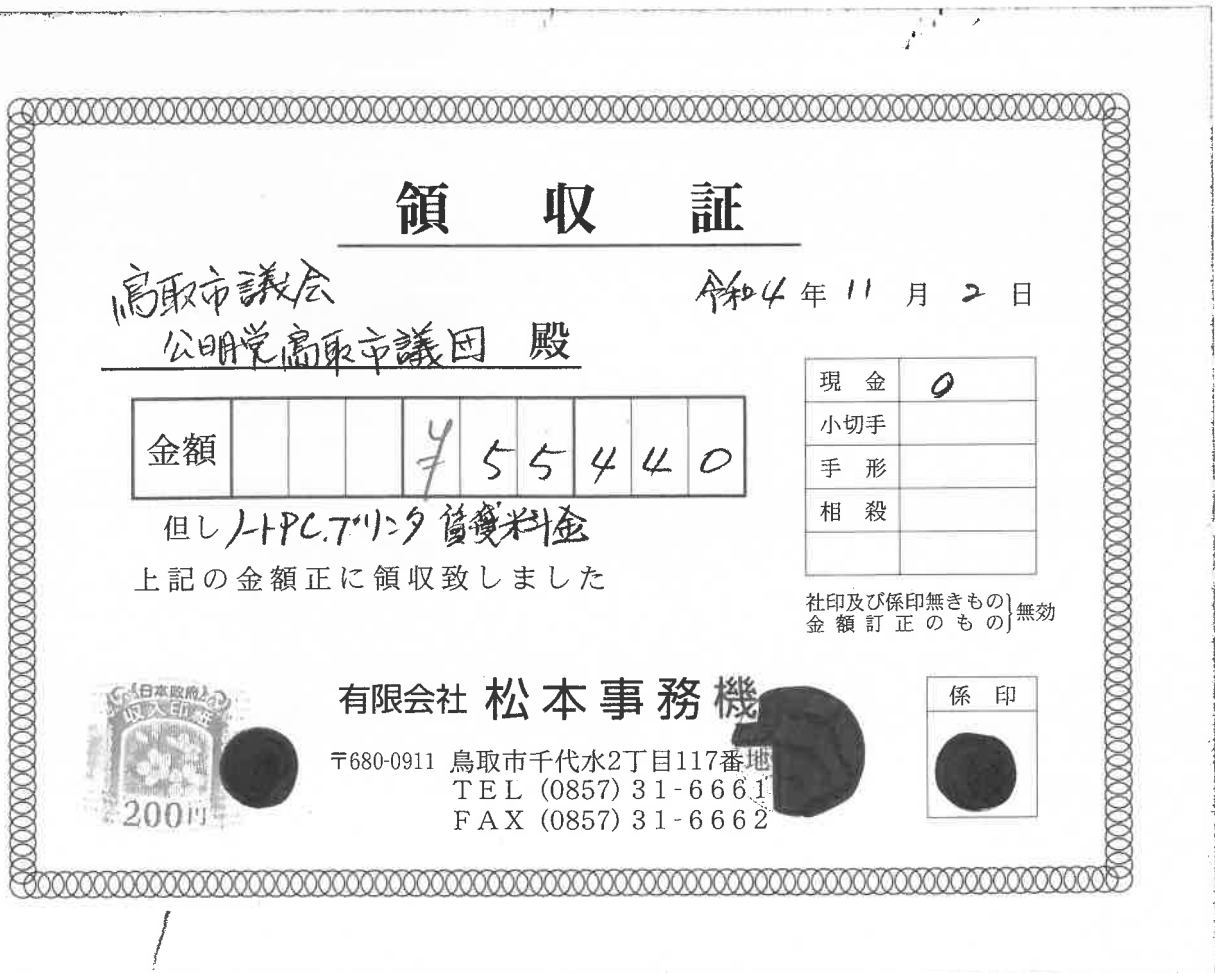 領収証
鳥取市議会
令和4年11月2日
公明党鳥取市議団 殿
金額 ¥55440
但しノートPC.プリンタ賃貸料金
上記の金額正に領収致しました
現金 0
小切手
手形
相殺
社印及び係印無きもの
金額訂正のもの}無効
日本政府
収入印紙
200円
有限会社 松本事務機
〒680-0911 鳥取市千代水2丁目117番地
TEL (0857) 31-6661
FAX (0857) 31-6662
係印